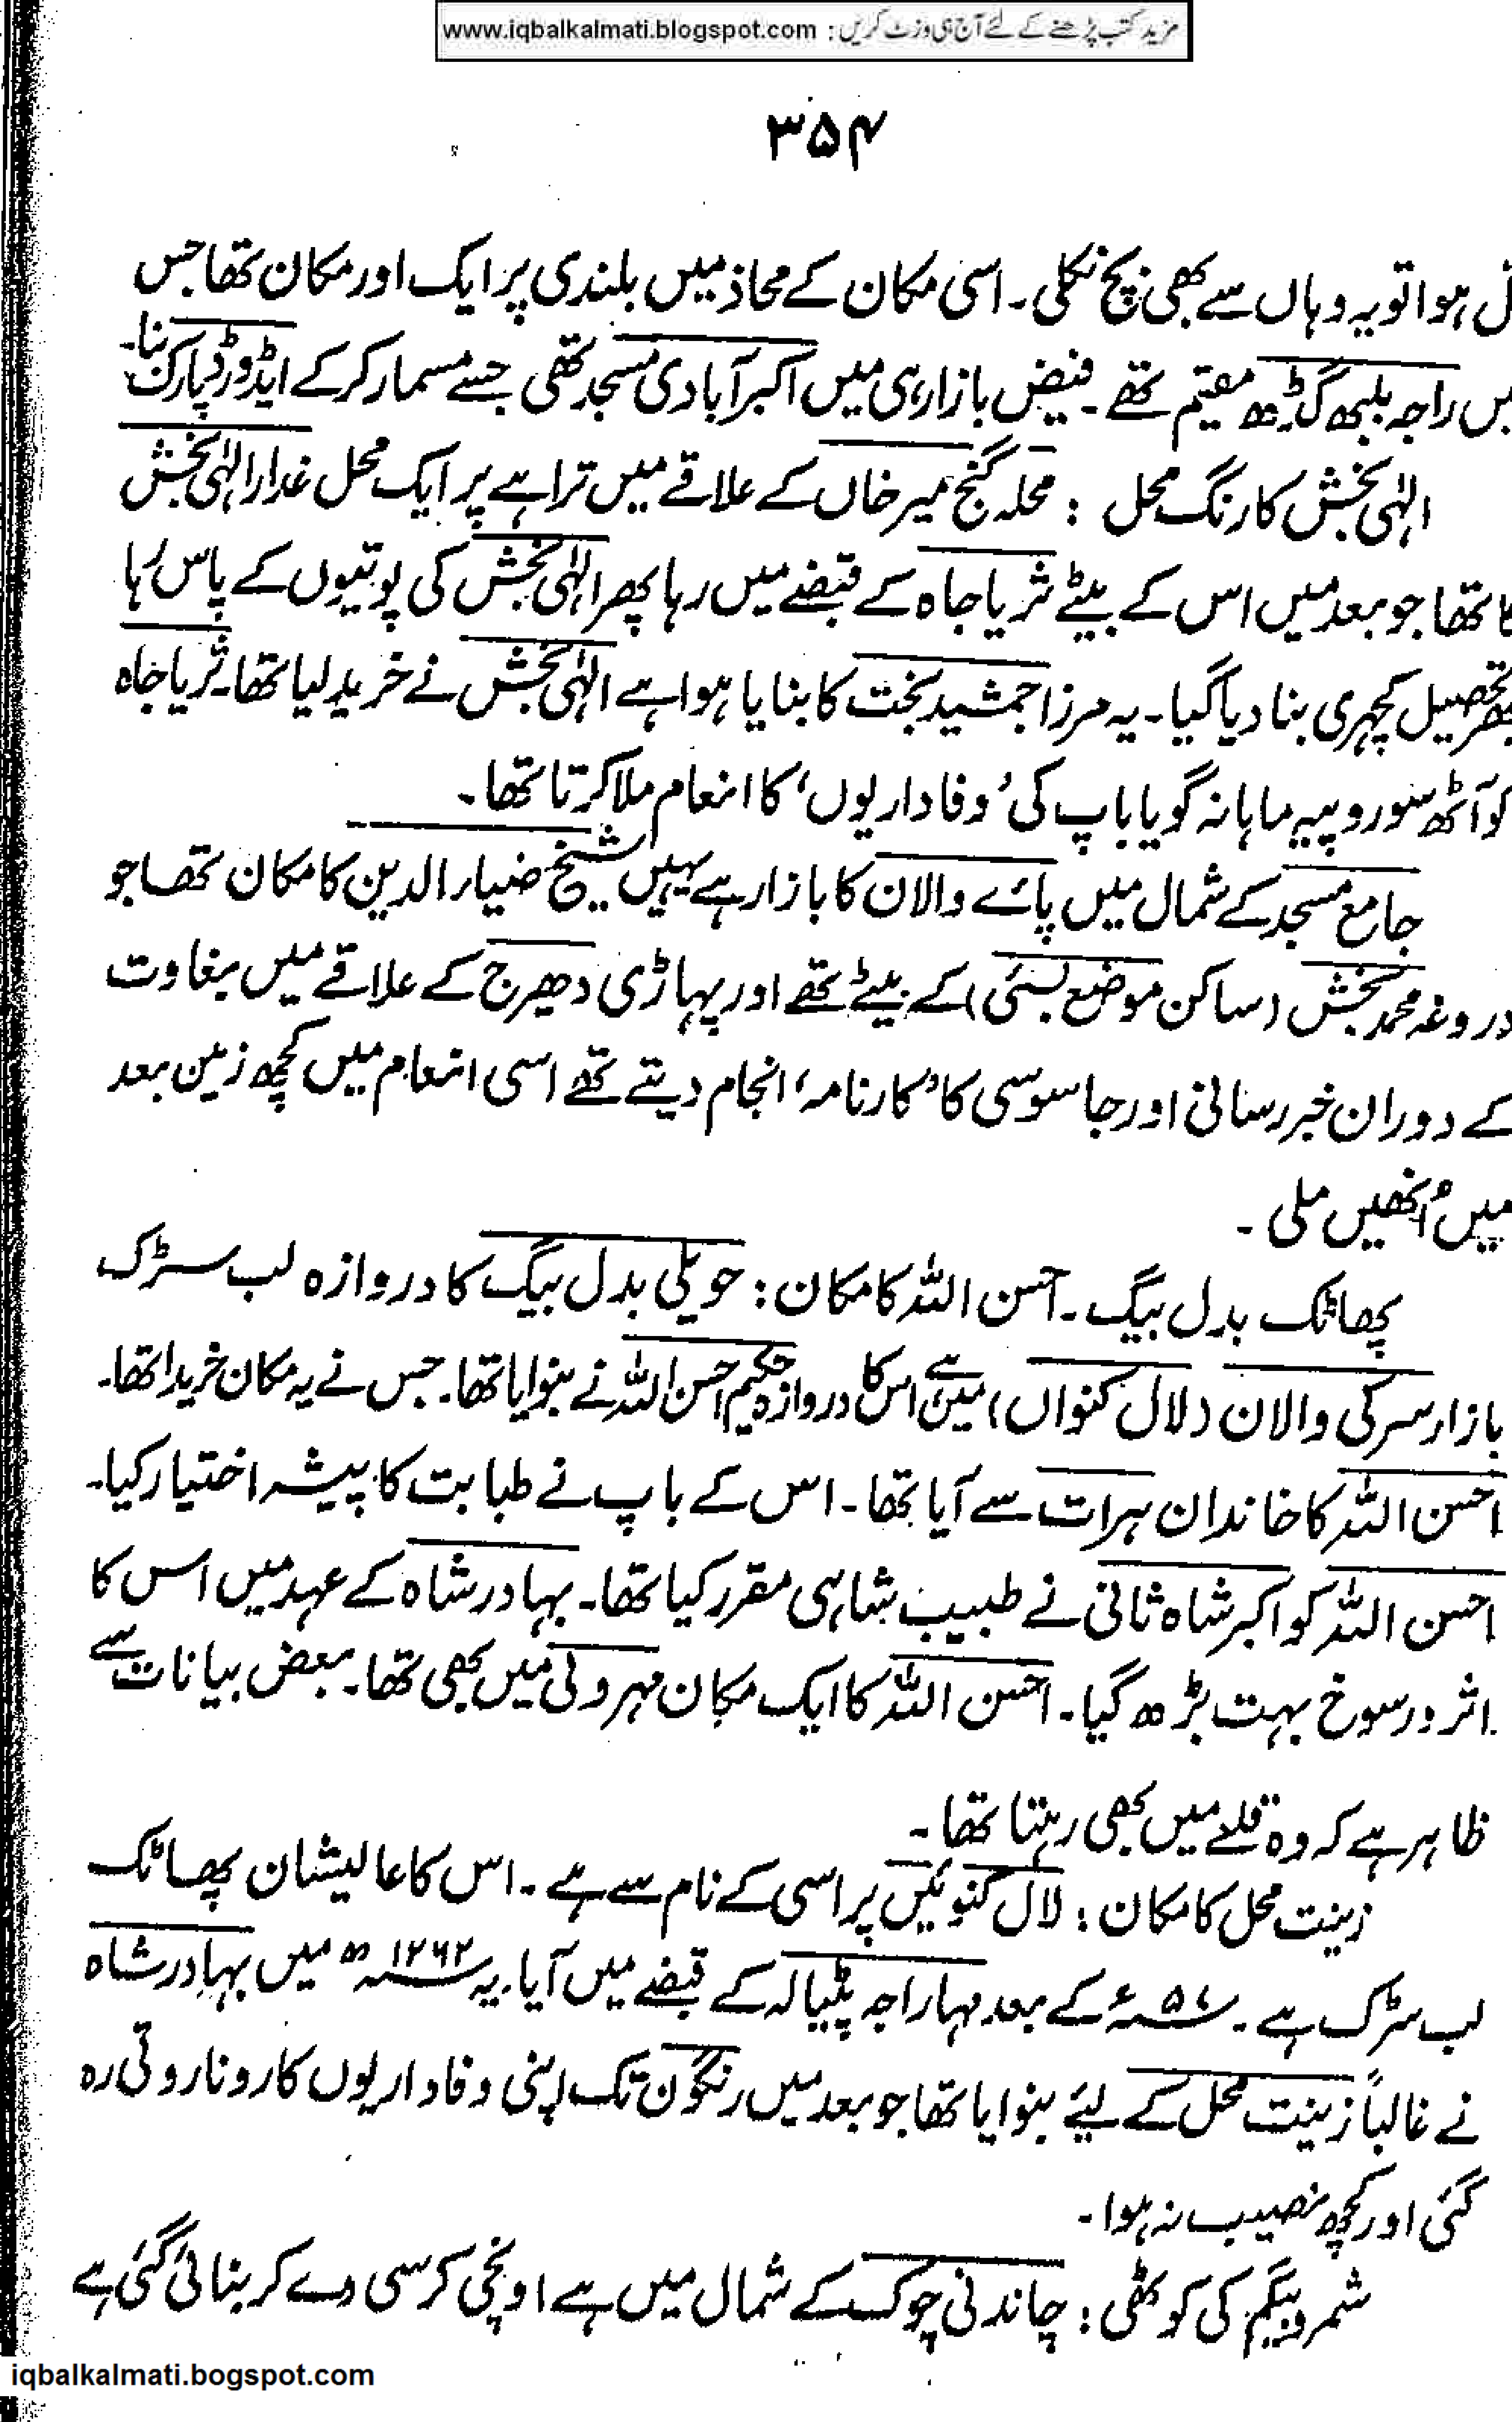 مزید کتب پڑھنے کے لئے آج ہی وزٹ کریں : www.iqbalkalmati.blogspot.com
۳۵۴
ہوا تو یہ وہاں سے بھی بچ نکلی ۔ اسی مکان کے محاذ میں بلندی پر ایک اور مکان تھا جس
راجہ بلبھ گڑھ مقیم تھے ۔ فیض بازار ہی میں اکبر آبادی مسجد تھی جسے مسمار کر کے ایڈورڈ پارک بنا۔
الٰہی بخش کا رنگ محل : محلہ گنج میر خاں کے علاقے میں تراہے پر ایک محل غدار الٰہی بخش
کا تھا جو بعد میں اس کے بیٹے ثریا جاہ کے قبضے میں رہا پھر الٰہی بخش کی پوتیوں کے پاس رہا
پھر تحصیل کچہری بنا دیا گیا ۔ یہ مرزا جمشید بخت کا بنایا ہوا ہے الٰہی بخش نے خرید لیا تھا۔ ثریا جاہ
کو آٹھ سو روپیہ ماہانہ گویا باپ کی ’وفاداریوں‘ کا انعام ملا کرتا تھا ۔
جامع مسجد کے شمال میں پائے والان کا بازار ہے یہیں شیخ ضیاء الدین کا مکان تھا جو
دروغہ محمد بخش (ساکن موضع بسئی) کے بیٹے تھے اور پہاڑی دھیرج کے علاقے میں بغاوت
کے دوران خبر رسانی اور جاسوسی کا ’کارنامہ‘ انجام دیتے تھے اسی انعام میں کچھ زمین بعد
میں اُنھیں ملی ۔
پھاٹک بدل بیگ ۔ احسن اللہ کا مکان : حویلی بدل بیگ کا دروازہ لب سڑک
بازار سرکی والان (لال کنواں) میں ہے اس کا دروازہ حکیم احسن اللہ نے بنوایا تھا۔ جس نے یہ مکان خریدا تھا۔
احسن اللہ کا خاندان ہرات سے آیا تھا ۔ اس کے باپ نے طبابت کا پیشہ اختیار کیا۔
احسن اللہ کو اکبر شاہ ثانی نے طبیب شاہی مقرر کیا تھا ۔ بہادر شاہ کے عہد میں اس کا
اثر و رسوخ بہت بڑھ گیا ۔ احسن اللہ کا ایک مکان مہرولی میں بھی تھا۔ بعض بیانات سے
ظاہر ہے کہ وہ قلعے میں بھی رہتا تھا ۔
زینت محل کا مکان : لال کنوئیں پر اسی کے نام سے ہے ۔ اس کا عالیشان پھاٹک
لب سڑک ہے ۔ ۵۷ء کے بعد مہاراجہ پٹیالہ کے قبضے میں آیا، یہ ۱۲۶۲ھ میں بہادر شاہ
نے غالباً زینت محل کے لیئے بنوایا تھا جو بعد میں رنگون تک اپنی وفاداریوں کا رونا روتی رہ
گئی اور کچھ نصیب نہ ہوا ۔
شمرو بیگم کی کوٹھی : چاندنی چوک کے شمال میں ہے اونچی کرسی دے کر بنائی گئی ہے
iqbalkalmati.bogspot.com